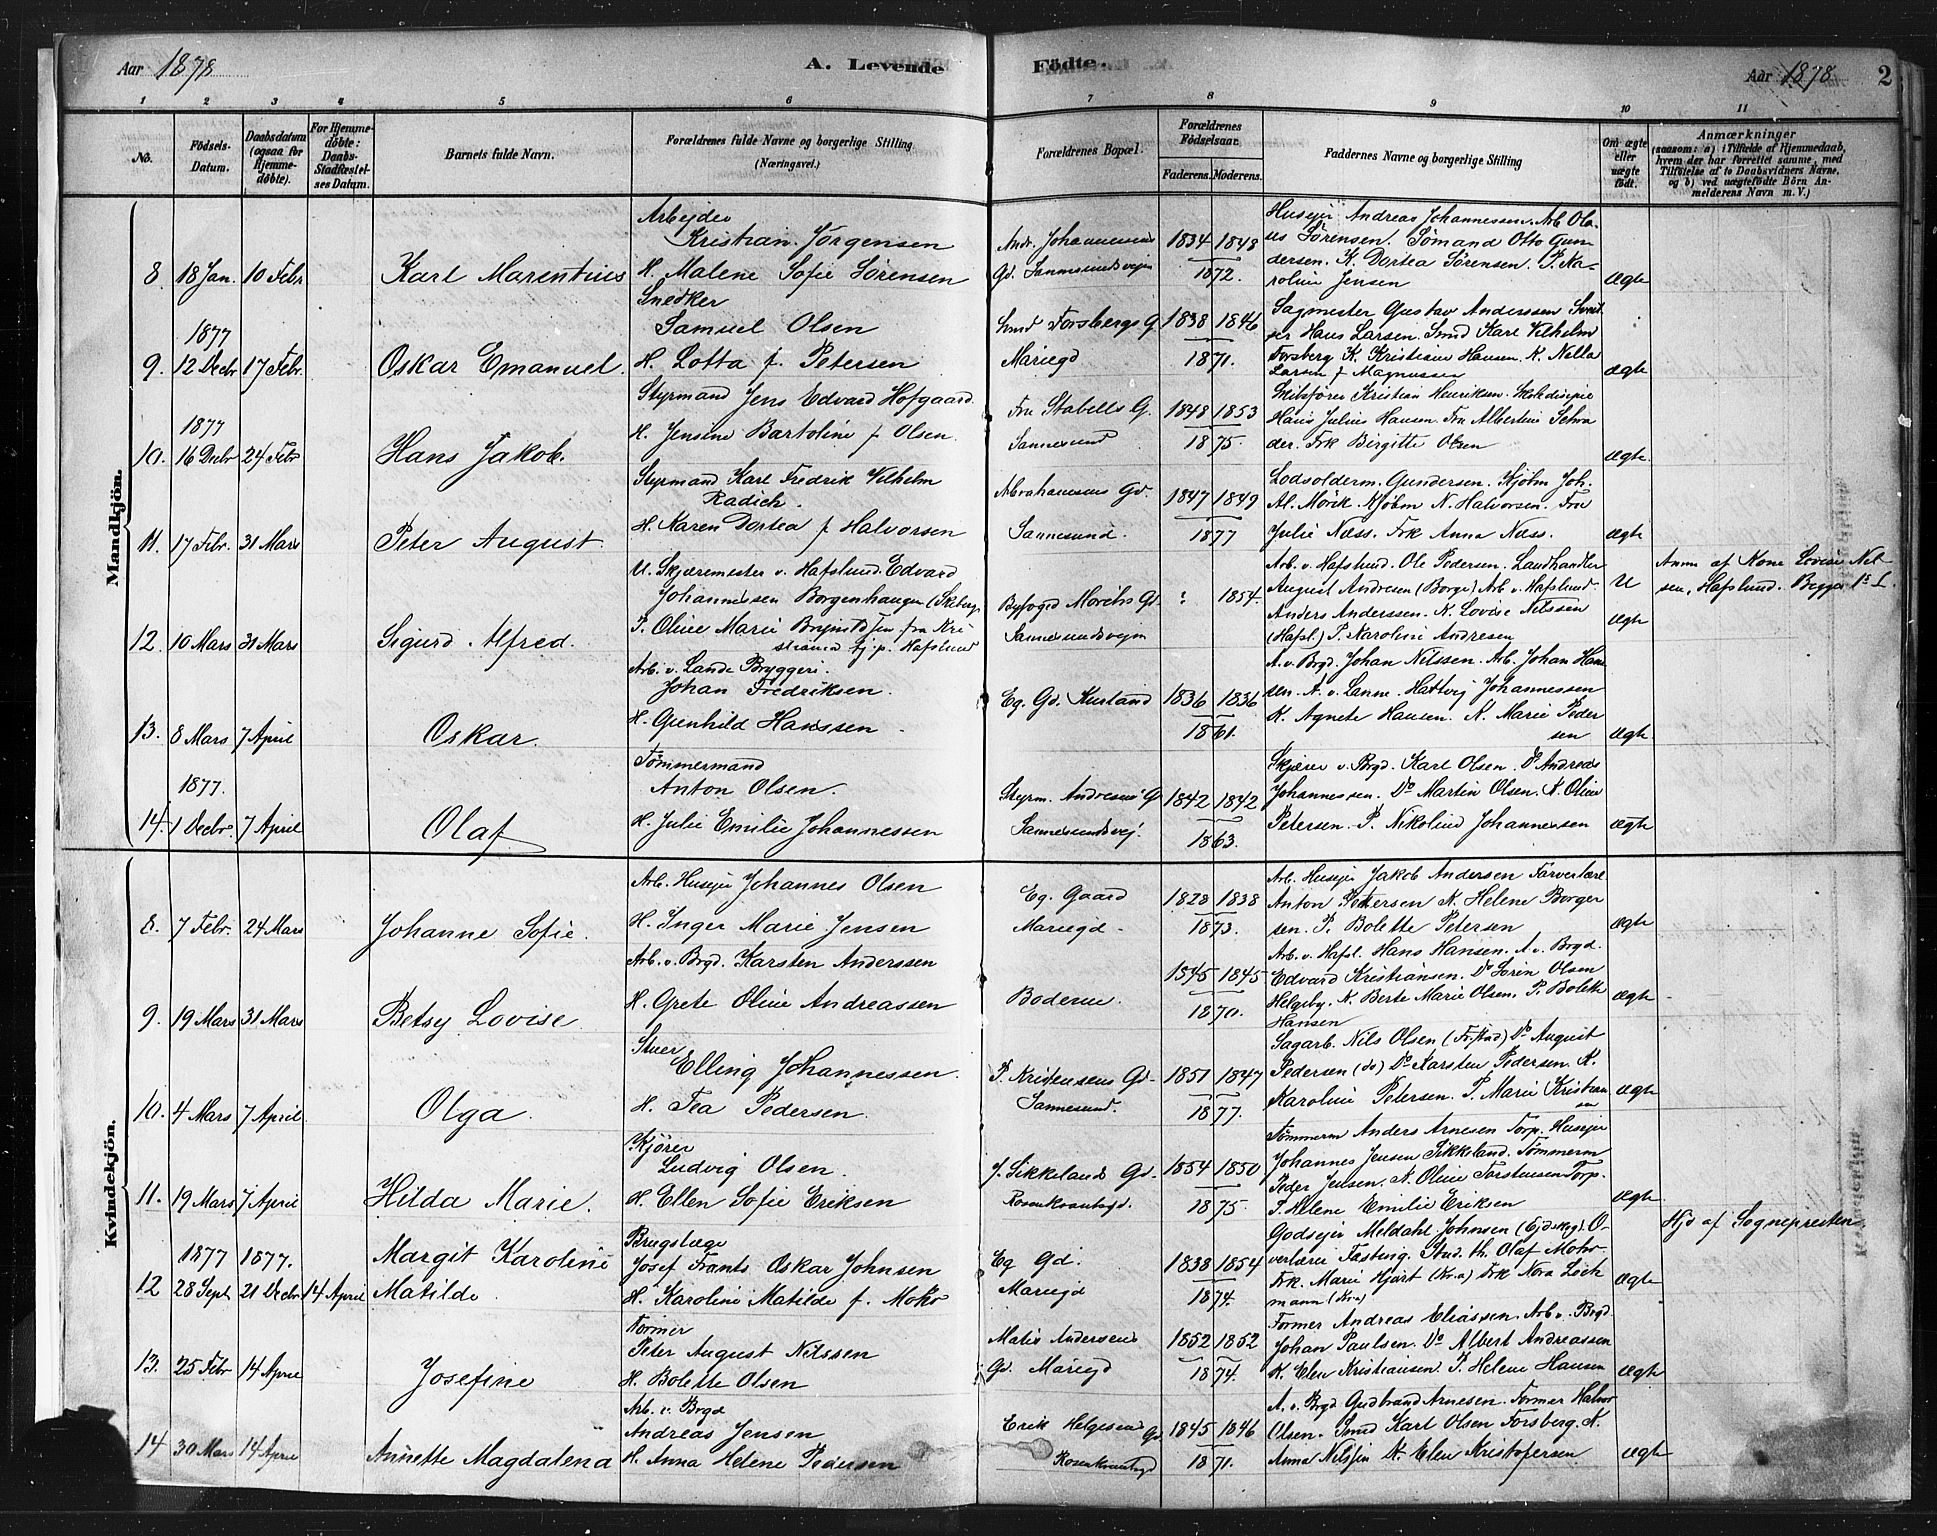 Aar 1878 A. Levende Födte. Aar 1878 2
1 2 3 4 5 6 7 8 9 10 11
No.
Födsels-Datum.
Daabsdatum (ogsaa for Hjemme-döbte).
For Hjemme-döbte: Daabs-Stadfæstel-ses Datum.
Barnets fulde Navn.
Forældrenes fulde Navne og borgerlige Stilling
(Næringsvei.)
Forældrenes Bopæl.
Forældrenes Födselsaar.
Faderens. Moderens.
Faddernes Navne og borgerlige Stilling
Om ægte eller uægte födt.
Anmærkninger
(saasom: a) i Tilfælde af Hjemmedaab, hvem der har forrettet samme, med Tilföielse af to Daabsvidners Navne, og b) ved uægtefödte Börn An-melderens Navn m. V.)
Mandkjön.
Arbejder
Kristian Jörgensen
8. 18 Jan. 10 Febr Karl Marentius H. Malene Sofie Sörensen
Andr. Johannesens
Gd. Sannesundsvejen
1834 1848
1872.
Husejer Andreas Johannessen. Arb. Ola-
us Sörensen. Sömand Otto Gun-
dersen. K. Dortea Sörensen. P. Ka-
roline Jensen
Ægte
Snedker
Samuel Olsen
1877
9. 12 Decbr 17 Febr. Oskar Emanuel. H. Lotta f. Petersen
Smed Forsbergs G.
Mariegd
1838 1846
1871.
Sagmester Gustav Anderssen
Hans Larsen. Smed Karl Vilhelm
Forsberg K. Kristiane Hansen. K. Nella
Larsen f Magnussen
Ægte
Styrmand Jens Edvard Hofgaard.
1877
10. 16 Decbr 24 Febr Hans Jakob. H. Jensine Bartoline f Olsen.
Fru Stabells G.
Sannesund
1848 1853
1875.
Skibsförer Kristian Henriksen.
Hans Julius Hansen. Fru Albertine Schra
der. Frk Birgitte Olsen
Ægte.
Styrmand Karl Fredrik Vilhelm
Radich.
11. 17 Febr. 31 Mars Peter August. H. Karen Dortea f Halvorsen
Abrahamsens Gd.
Sannesund.
1847 1849
1877
Lodsolderm. Gundersen. Kjöbm Joh.
Al. Mörik. Kjöbm N. Halvorsen. Fru
Julie Næss. Frk Anna Næss.
Ægte
U. Skjæremester v. Hafslund Edvard
Johannessen Borgenhaugen (Skeberg
12. 10 Mars 31 Mars Sigurd Alfred.
P. Oline Marie fra Kri
stiania tj. p. Hafslund
Byfoged Morchs Gd.
Sannesundsvejen
? 1854.
Arb. v. Hafslund. Ole Pedersen. Landhandler
August Andresen (Borge) Arb v. Hafslund.
Anders Anderssen. K. Lovise Nilssen
(Hafsl.) P. Karoline Andresen
U
Ægte
Anm af Kone Lovise Nil-
sen, Hafslund. Begges 1s L.
Arb. v. Lande Bryggeri
Johan Fredriksen.
13. 8 Mars 7 April Oskar. H. Gunhild Hanssen.
Eg. Gd. Kurland
1836 1836
1861.
A. v. Brgd. Johan Nilssen. Arb. Johan Han
sen. A. v. Lanne. Hattvig Johannessen
K. Agnete Hansen. K. Marie Peder
sen
Ægte.
Tömmermand
Anton Olsen.
1877.
14. 1 Decbr. 7 April Olaf H. Julie Emilie Johannessen
Styrm. Andresens G
Sannesundsvej.
1842 1842
1863.
Skjærer v. Brgd. Karl Olsen. Do Andreas
Johannessen. Do Martin Olsen. K. Oline
Petersen. P. Nikoline Johannessen
Ægte
Kvindekjön.
Arb. Husejer Johannes Olsen
8. 7 Febr. 24 Mars Johanne Sofie. H. Inger Marie Jensen
Eg. Gaard
Mariegd.
1828 1838
1873.
Arb. Husejer Jakob Andersen Farverlærl
Anton Petersen K. Helene Borger
sen. P. Bolette Petersen
Ægte
Arb. v. Brgd. Karsten Anderssen
9. 19 Mars 31 Mars Betsy Lovise. H. Grete Oline Andreassen
Boderne.
1845 1845
1870.
Arb. v. Hafsl. Hans Hansen. A. v. Brgd.
Edvard Kristiansen. Do Sören Olsen
Helgeby. K. Berte Marie Olsen. P. Bolette
Hansen
Ægte
Stuer
Elling Johannessen.
10. 4 Mars 7 April Olga. H. Tea Pedersen.
P. Kristensens Gd.
Sannesund.
1851 1847
1877.
Sagarb. Nils Olsen (Fr.stad) Do August
Pedersen (do) Do Karsten Pedersen. K.
Karoline Petersen. P. Marie Kristian
sen
Ægte
Kjörer
Ludvig Olsen.
11. 19 Mars 7 April Hilda Marie. H. Ellen Sofie Eriksen
J. Sikkelands Gd.
Rosenkrantzgd.
1854 1850
1875.
Tömmerm Anders Arnesen Torp. Husejer
Johannes Jensen Sikkeland. Tömmerm
Peder Jensen. K. Oline Torstensen Torp.
P. Helene Emilie Eriksen
Ægte
Brugslæge
1877 1877. Margit Karoline Josef Frants Oskar Johnsen
12 28 Sept 21 Decbr 14 April Matilde. H. Karoline Matilde f. Mohr
Eg Gd.
Mariegd
1838 1854
1874.
Godsejer Meldahl Johnsen (Ejdskog). O-
verlærer Tasting. Stud. th. Olaf Mohr.
Frk. Marie Hjort (Kr.a) Frk Nora Loch
mann (Kra)
Ægte
Hjd af Sognepresten
Former
Peter August Nilssen
13. 25 Febr 14 April Josefine H. Bolette Olsen
Matis Andersens
Gd. Mariegd
1852 1852
1874.
Former Andreas Eliassen. Arb v. Brgd.
Johan Paulsen. Do Albert Andreassen
K. Elen Kristiansen. P. Helene Hansen
Ægte
Arb. v. Brgd
Andreas Jensen
14 30 Mars 14 April Annette Magdalena H. Anna Helene Pedersen
Erik Helgesens Gd
Rosenkrantzgd
1845 1846
1871.
A. v. Brgd Gudbrand Arnesen. Former Halvor
Olsen. Smed Karl Olsen Forsberg. K.
Anna Nilssen K. Elen Kristofersen
Ægte